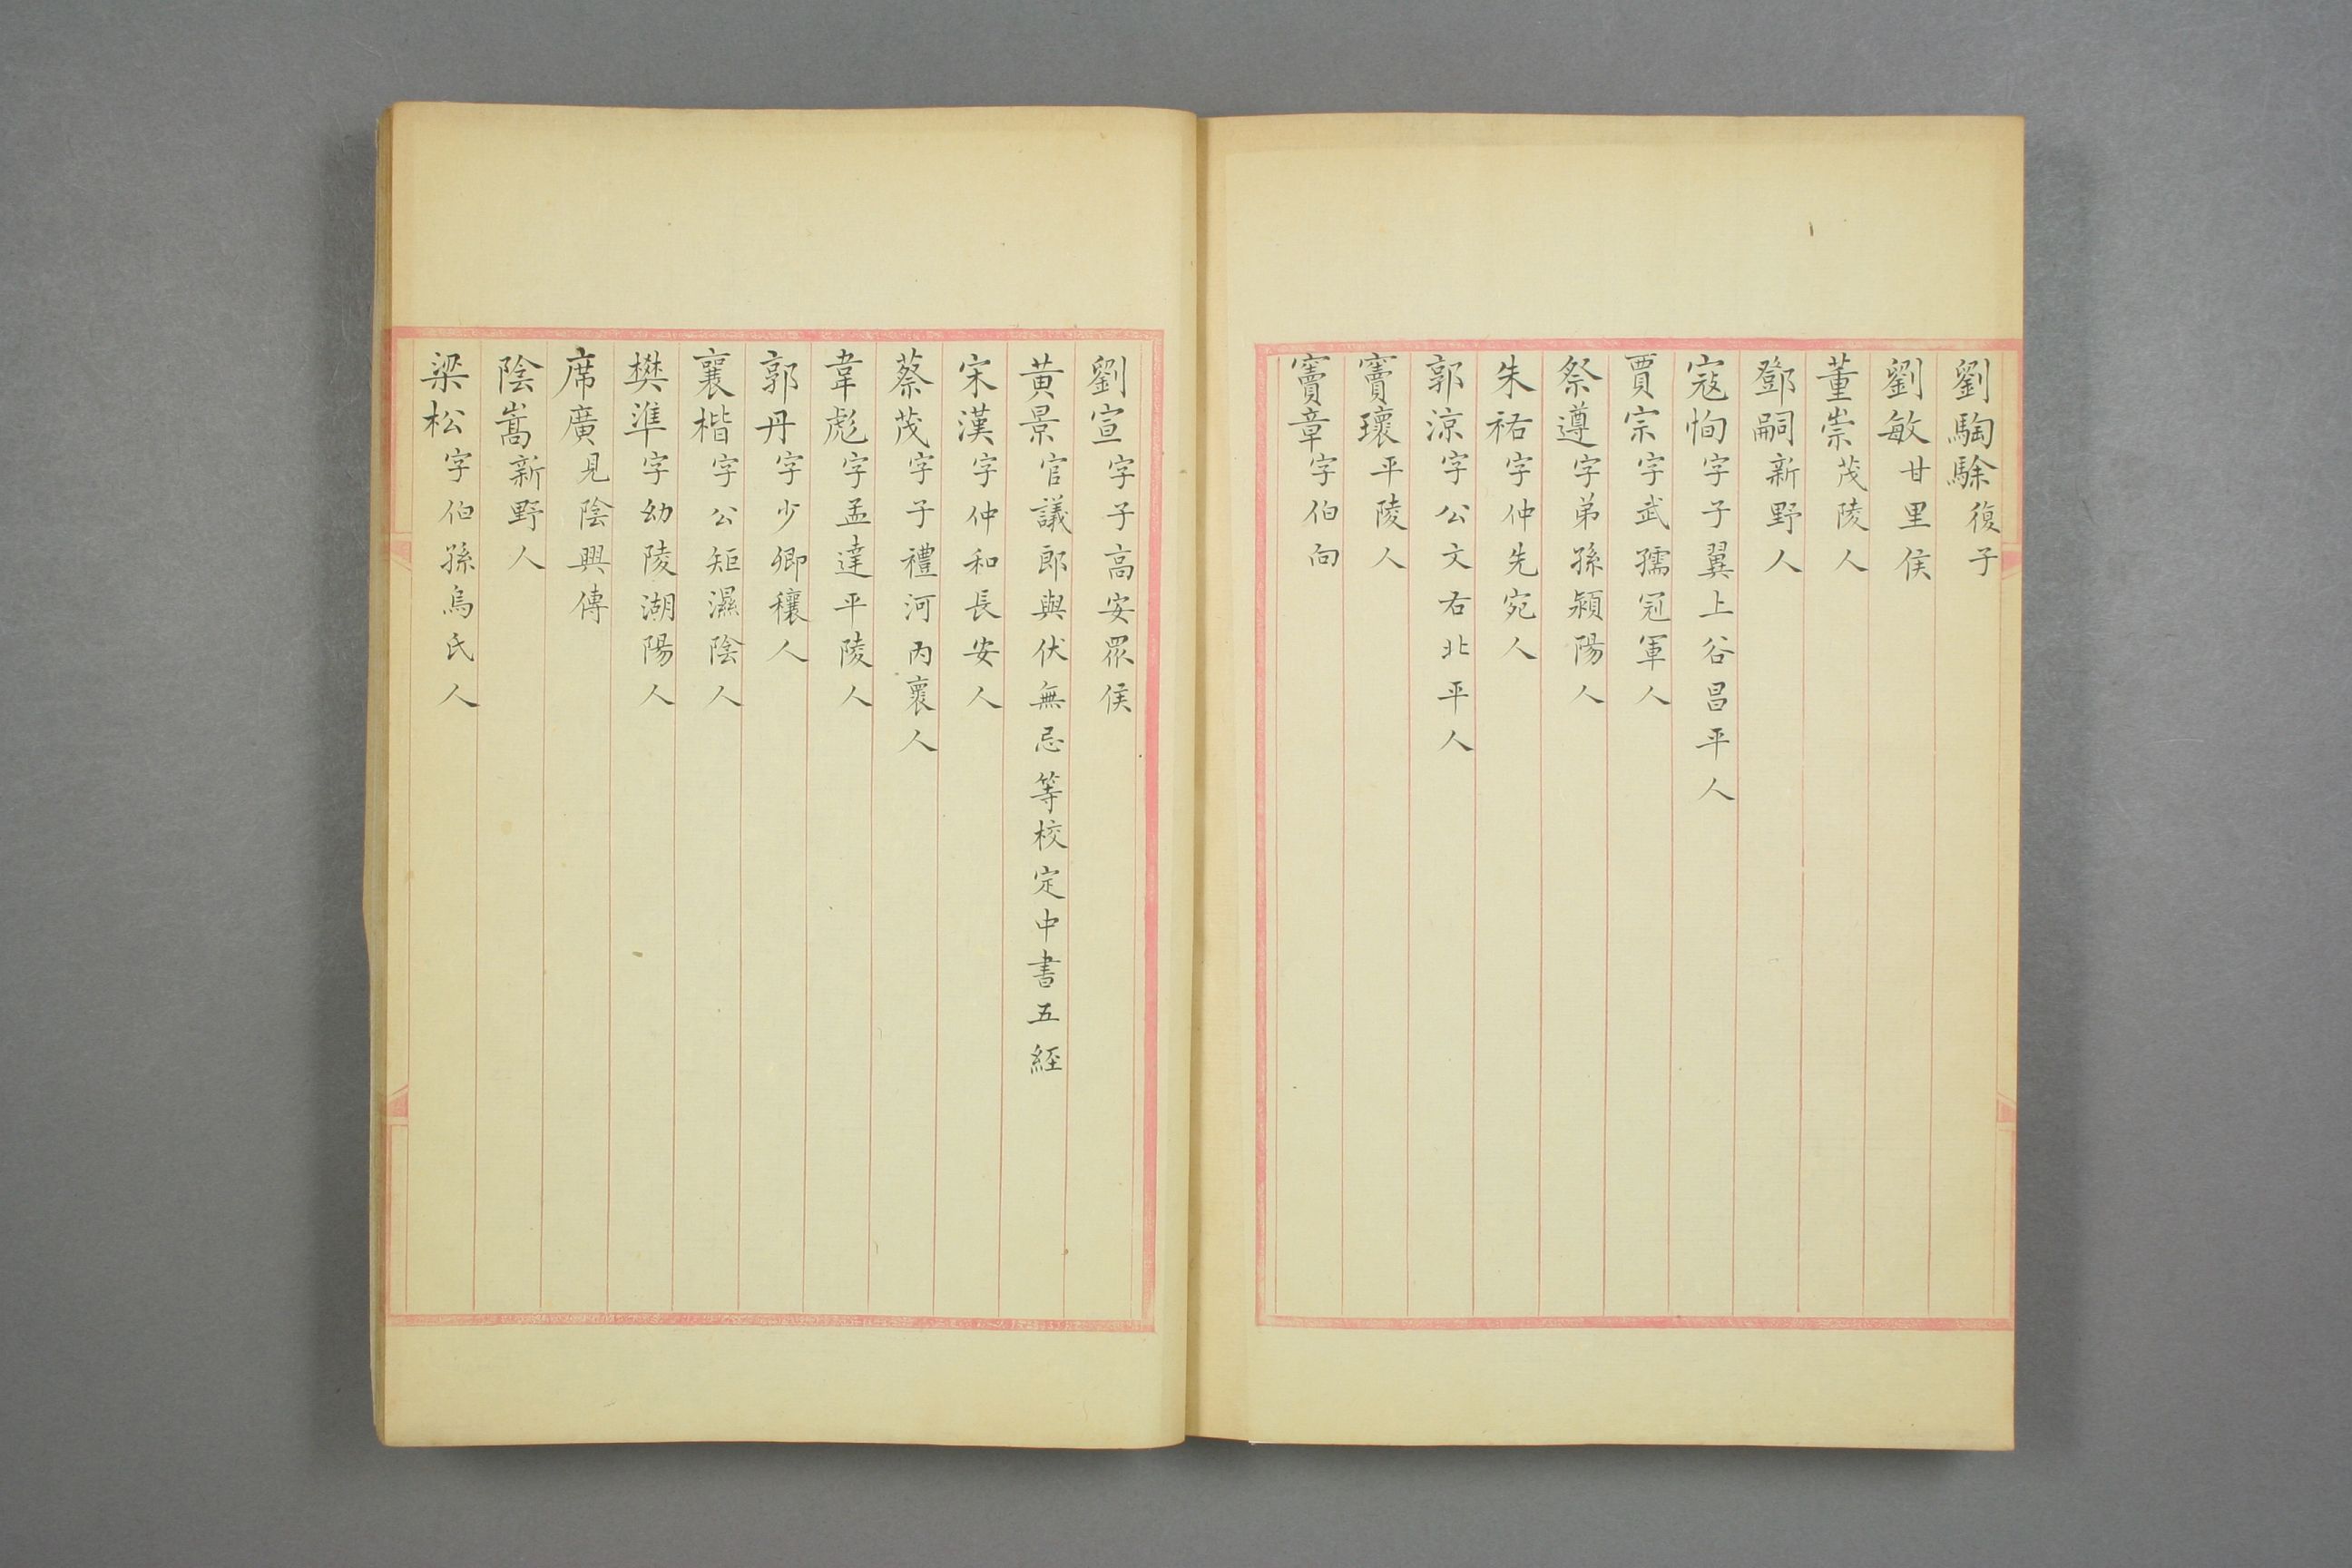 劉騊駼復子
劉敏甘里侯
董崇茂陵人
鄧嗣新野人
寇恂字子翼上谷昌平人
賈宗字武孺冠軍人
祭遵字弟孫潁陽人
朱祐字仲先宛人
郭涼字公文右北平人
竇瓌平陵人
竇章字伯向
劉宣字子高安眾侯
黄景官議郎與伏無忌等校定中書五經
宋漢字仲和長安人
蔡茂字子禮河內褱人
韋彪字孟達平陵人
郭丹字少卿穰人
襄楷字公矩濕陰人
樊準字幼陵湖陽人
席廣見陰興傳
陰嵩新野人
梁松字伯孫烏氏人